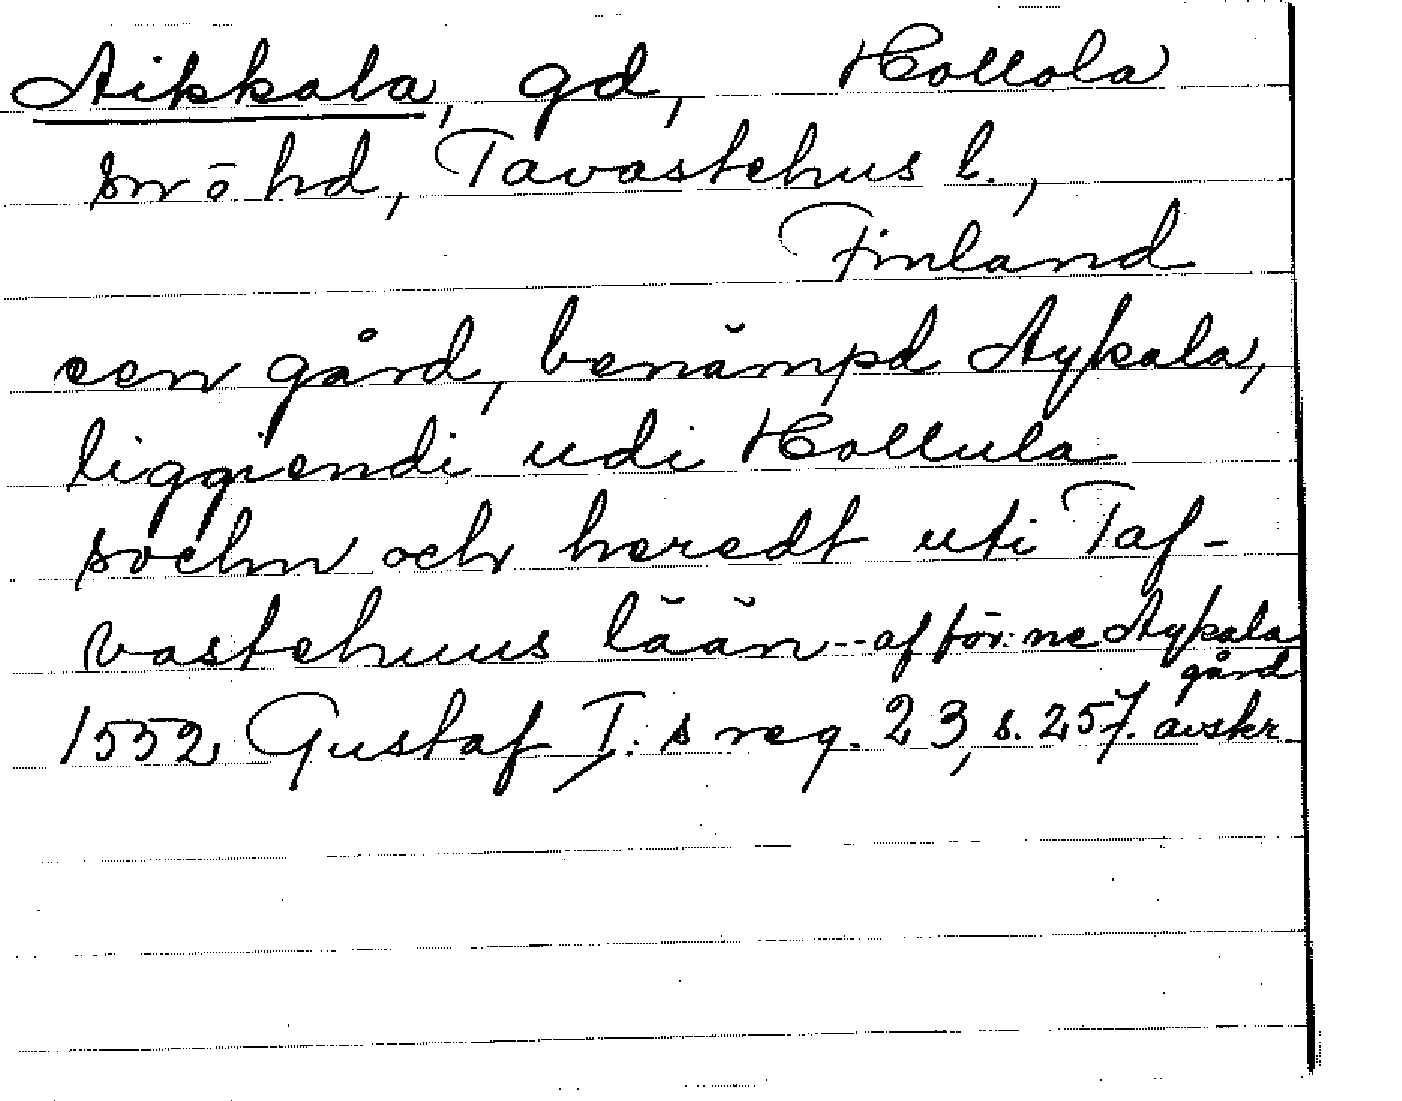 Aikkala, gd, Hollola
sn o hd, Tavastehus l.,
Finland
een gård, benämpd Aykala,
liggiendi udi Hollula
sochn och heredt uti Taf-
vastehuus lään -- af för:ne Aykala
gård
1552 Gustaf I:s reg. 23, s. 257. avskr.